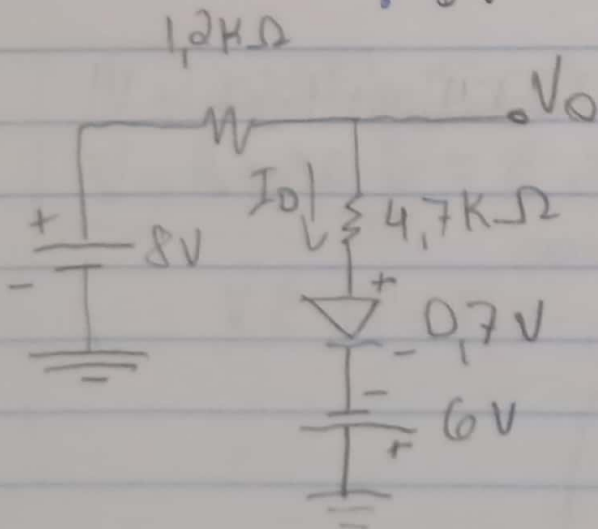 1,2KΩ
Vo
+
ID
4,7KΩ
8V
-
+
0,7V
-
-
6V
+